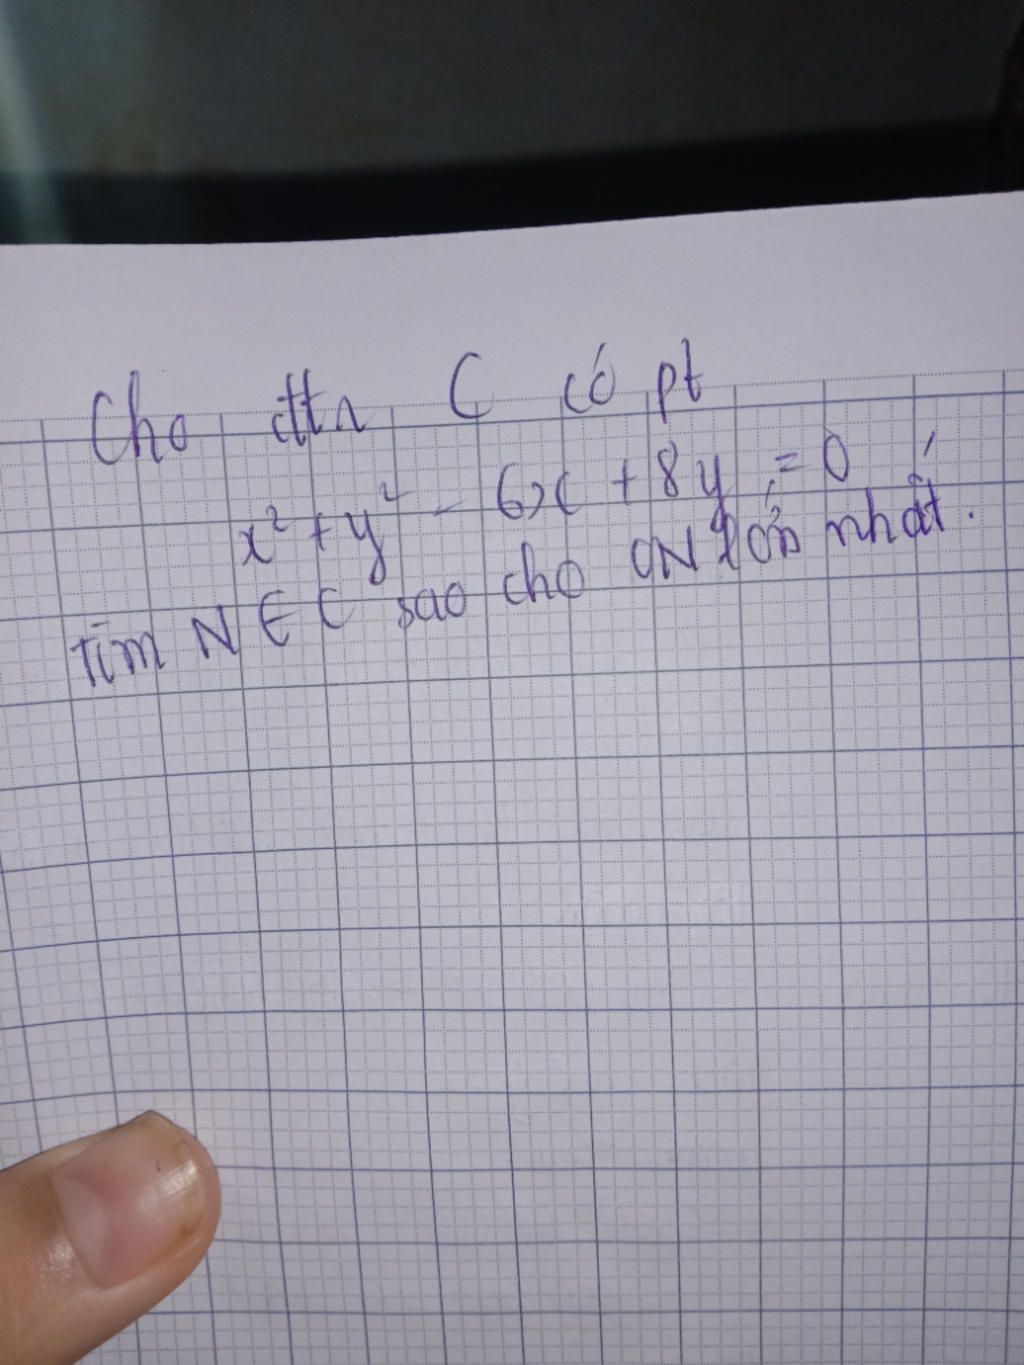 Cho đtn C có pt
x² + y² - 6x + 8y = 0
Tìm N ∈ C sao cho ON lớn nhất.